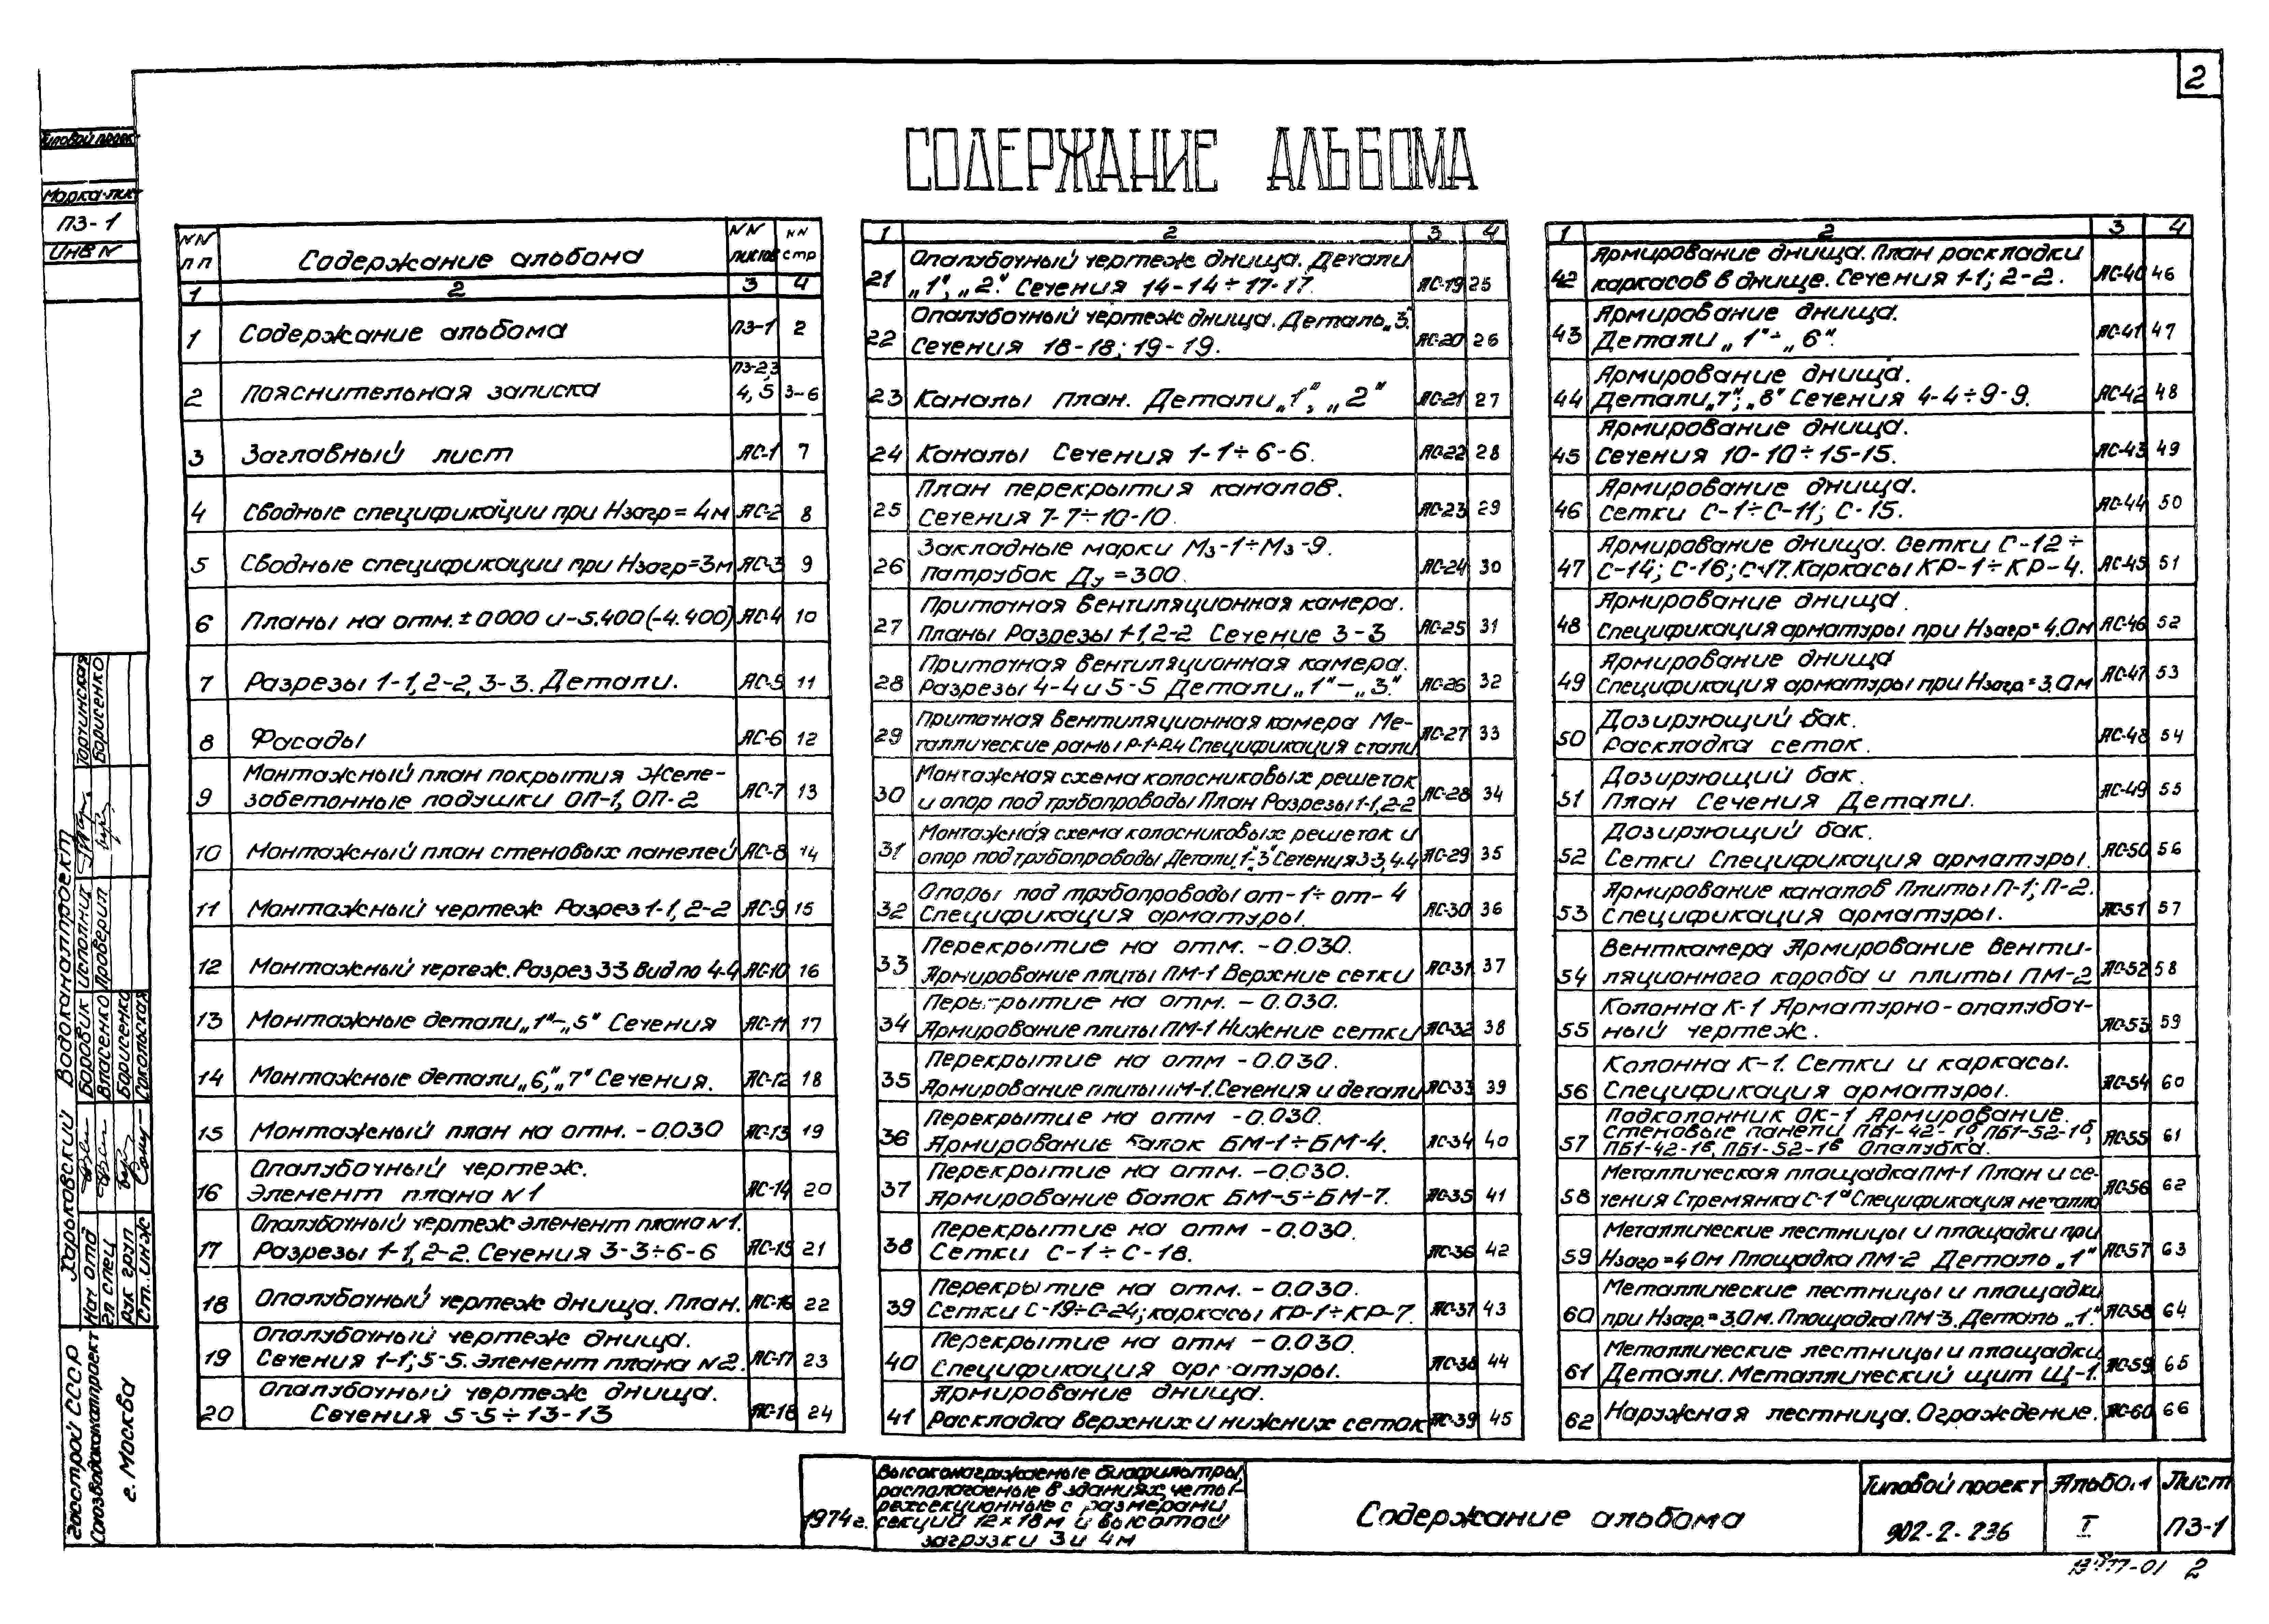 2
СОДЕРЖАНИЕ АЛЬБОМА
Типовой проек
Марка-лист
ПЗ-1
ИНВ N
NN пп Содержание альбома NN листов NN стр
1 2 3 4
1 Содержание альбома ПЗ-1 2
2 Пояснительная записка ПЗ-2,3 4,5 3-6
3 Заглавный лист АС-1 7
4 Сводные спецификации при Hзагр = 4м АС-2 8
5 Сводные спецификации при Hзагр=3м АС-3 9
6 Планы на отм. ± 0000 и -5.400 (-4.400) АС-4 10
7 Разрезы 1-1, 2-2, 3-3. Детали. АС-5 11
8 Фасады АС-6 12
9 Монтажный план покрытия Желе-
забетонные подушки ОП-1, ОП-2 АС-7 13
10 Монтажный план стеновых панелей АС-8 14
11 Монтажный чертеж Разрез 1-1, 2-2 АС-9 15
12 Монтажный чертеж. Разрез 3 3 Вид по 4-4 АС-10 16
13 Монтажные детали „1"-„5" Сечения АС-11 17
14 Монтажные детали „6", „7" Сечения. АС-12 18
15 Монтажный план на отм. -0.030 АС-13 19
Опалубочный чертеж.
16 Элемент плана N1 АС-14 20
Опалубочный чертеж элемент плана N1.
17 Разрезы 1-1, 2-2. Сечения 3-3÷6-6 АС-15 21
18 Опалубочный чертеж днища. План. АС-16 22
Опалубочный чертеж днища.
19 Сечения 1-1; 5-5. Элемент плана N2. АС-17 23
Опалубочный чертеж днища.
20 Сечения 5-5÷13-13 АС-18 24
1 2 3 4
Опалубочный чертеж днища. Детали
21 „1", „2". Сечения 14-14÷17-17. АС-19 25
Опалубочный чертеж днища. Деталь „3".
22 Сечения 18-18; 19-19. АС-20 26
23 Каналы план. Детали „1", „2" АС-21 27
24 Каналы Сечения 1-1÷6-6. АС-22 28
План перекрытия каналов.
25 Сечения 7-7÷10-10. АС-23 29
Закладные марки Мз-1÷Мз-9.
26 Патрубок Ду=300. АС-24 30
Приточная вентиляционная камера.
27 Планы Разрезы 1-1, 2-2 Сечение 3-3 АС-25 31
Приточная вентиляционная камера.
28 Разрезы 4-4 и 5-5 Детали „1"-„3." АС-26 32
Приточная вентиляционная камера Ме-
29 таллические рамы Р-1-Р4 Спецификация стали АС-27 33
Монтажная схема колосниковых решеток
30 и опор под трубопроводы План Разрезы 1-1, 2-2 АС-28 34
Монтажная схема колосниковых решеток и
31 опор под трубопроводы Детали „1"-„3" Сечения 3-3, 4-4 АС-29 35
Опоры под трубопроводы от-1÷от-4
32 Спецификация арматуры. АС-30 36
Перекрытие на отм. -0.030.
33 Армирование плиты ПМ-1 Верхние сетки АС-31 37
Перекрытие на отм. -0.030.
34 Армирование плиты ПМ-1 Нижние сетки АС-32 38
Перекрытие на отм -0.030.
35 Армирование плиты ПМ-1. Сечения и детали АС-33 39
Перекрытие на отм -0.030.
36 Армирование балок БМ-1÷БМ-4. АС-34 40
Перекрытие на отм. -0.030.
37 Армирование балок БМ-5÷БМ-7. АС-35 41
Перекрытие на отм -0.030.
38 Сетки С-1÷С-18. АС-36 42
Перекрытие на отм. -0.030.
39 Сетки С-19÷С-24; каркасы КР-1÷КР-7. АС-37 43
Перекрытие на отм -0.030.
40 Спецификация арматуры. АС-38 44
Армирование днища.
41 Раскладка верхних и нижних сеток АС-39 45
1 2 3 4
Армирование днища. План раскладки
42 каркасов в днище. Сечения 1-1; 2-2. АС-40 46
Армирование днища.
43 Детали „1"÷„6". АС-41 47
Армирование днища.
44 Детали „7"; „8" Сечения 4-4÷9-9. АС-42 48
Армирование днища.
45 Сечения 10-10÷15-15. АС-43 49
Армирование днища.
46 Сетки С-1÷С-11; С-15. АС-44 50
Армирование днища. Сетки С-12÷
47 С-14; С-16; С-17. Каркасы КР-1÷КР-4. АС-45 51
Армирование днища.
48 Спецификация арматуры при Hзагр=4.0м АС-46 52
Армирование днища
49 Спецификация арматуры при Hзагр=3.0м АС-47 53
Дозирующий бак.
50 Раскладка сеток. АС-48 54
Дозирующий бак.
51 План Сечения Детали. АС-49 55
Дозирующий бак.
52 Сетки Спецификация арматуры. АС-50 56
Армирование каналов Плиты П-1; П-2.
53 Спецификация арматуры. АС-51 57
Венткамера Армирование венти-
54 ляционного короба и плиты ПМ-2 АС-52 58
Колонна К-1 Арматурно-опалубоч-
55 ный чертеж. АС-53 59
Колонна К-1. Сетки и каркасы.
56 Спецификация арматуры. АС-54 60
Подколонник ОК-1 Армирование.
Стеновые панели ПБ1-42-1б, ПБ1-52-1б,
57 ПБ1-42-1в, ПБ1-52-1в Опалубка. АС-55 61
Металлическая площадка ПМ-1 План и се-
58 чения Стремянка С-1 Спецификация металла АС-56 62
Металлические лестницы и площадки при
59 Hзагр=4 0м Площадка ПМ-2 Деталь „1" АС-57 63
Металлические лестницы и площадки
60 при Hзагр.=3.0м. Площадка ПМ-3. Деталь „1." АС-58 64
Металлические лестницы и площадки
61 Детали. Металлический щит Щ-1. АС-59 65
62 Наружная лестница. Ограждение. АС-60 66
Госстрой СССР
Союзводоканалпроект
г. Москва
Харьковский Водоканалпроект
Нач отд Боровик
Гл спец Власенко
Рук груп Борисенко
Ст. инж Сокольская
Исполнил
Проверил Борисенко
1974г.
Высоконагружаемые биофильтры,
располагаемые в зданиях, четы-
рехсекционные с размерами
секций 12×18м и высотой
загрузки 3 и 4м
Содержание альбома
Типовой проект
902-2-236
Альбом
I
Лист
ПЗ-1
2